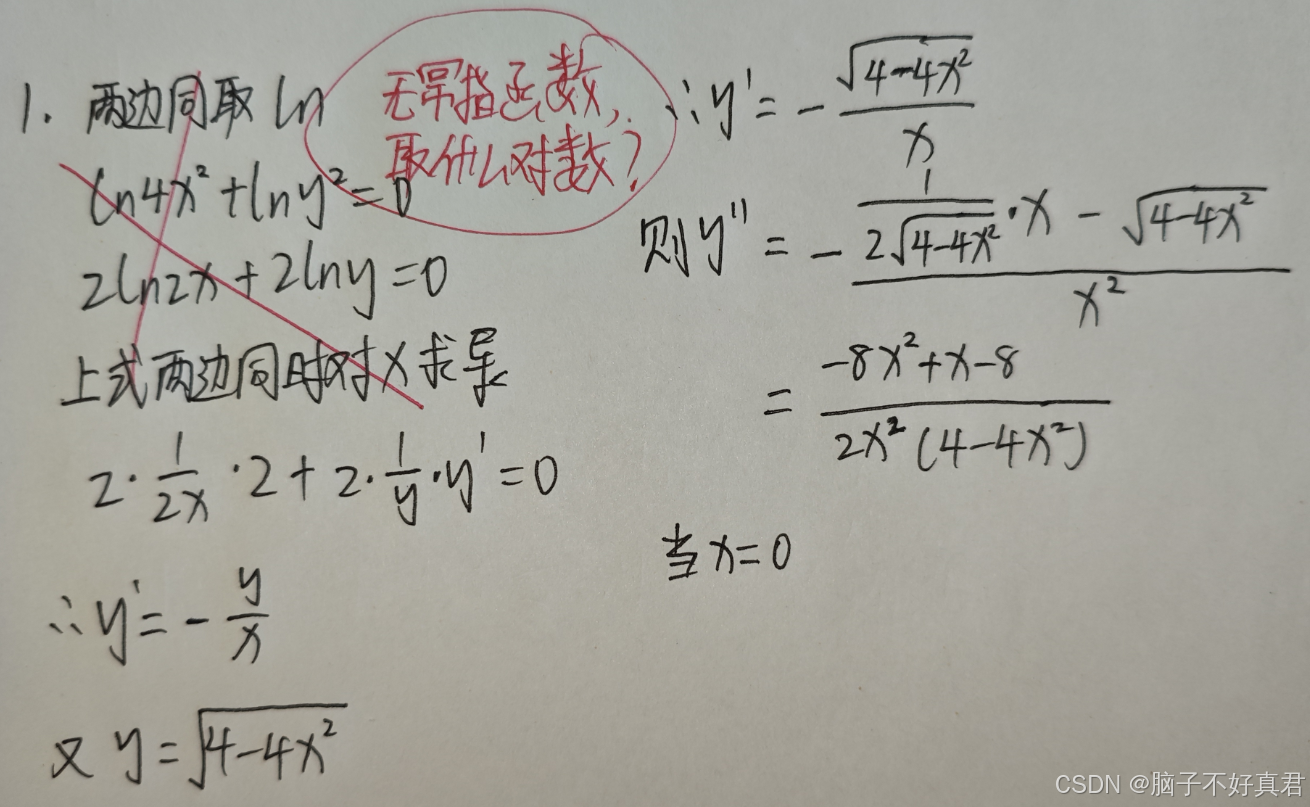 1. 两边同取 ln
无幂指函数,
取什么对数?
ln4x²+lny²=0
2ln2x+2lny=0
上式两边同时对x求导
2·1/2x·2+2·1/y·y'=0
∴y'=-y/x
又 y=√(4-4x²)
∴y'=-√(4-4x²)/x
则y''=-(1/(2√(4-4x²))·x-√(4-4x²))/x²
=(-8x²+x-8)/(2x²(4-4x²))
当x=0
CSDN @脑子不好真君